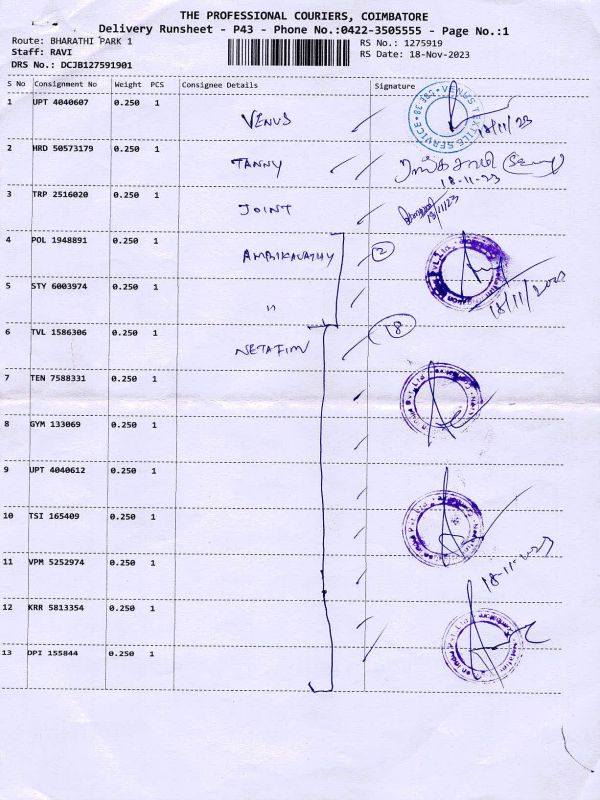 THE PROFESSIONAL COURIERS, COIMBATORE
Delivery Runsheet - P43 - Phone No.:0422-3505555 - Page No.:1
Route: BHARATHI PARK 1
Staff: RAVI
DRS No.: DCJB127591901
RS No.: 1275919
RS Date: 18-Nov-2023
S No Consignment No Weight PCS Consignee Details Signature
1 UPT 4040607 0.250 1 VENUS VENUS TEXTILE SERVICE 18/11/23
2 HRD 50573179 0.250 1 TANNY 18-11-23
3 TRP 2516020 0.250 1 JOINT 18/11/23
4 POL 1948891 0.250 1 AMBIKAVATHY 2
5 STY 6003974 0.250 1 " 18/11/2023
6 TVL 1586306 0.250 1 NETAFIM 18
7 TEN 7588331 0.250 1
8 GYM 133069 0.250 1
9 UPT 4040612 0.250 1
10 TSI 165409 0.250 1
11 VPM 5252974 0.250 1 18-11-2023
12 KRR 5813354 0.250 1
13 DPI 155844 0.250 1